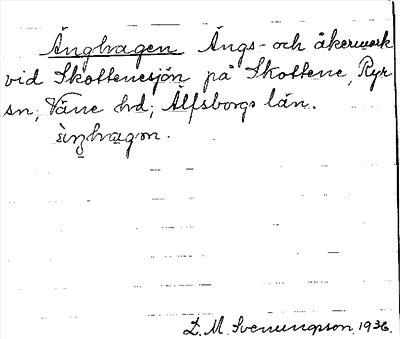 Änghagen Ängs- och åkermark
vid Skottenesjön på Skottene, Ryr
sn, Väne hd, Älfsborgs län.
D. M. Svenungsson. 1936.